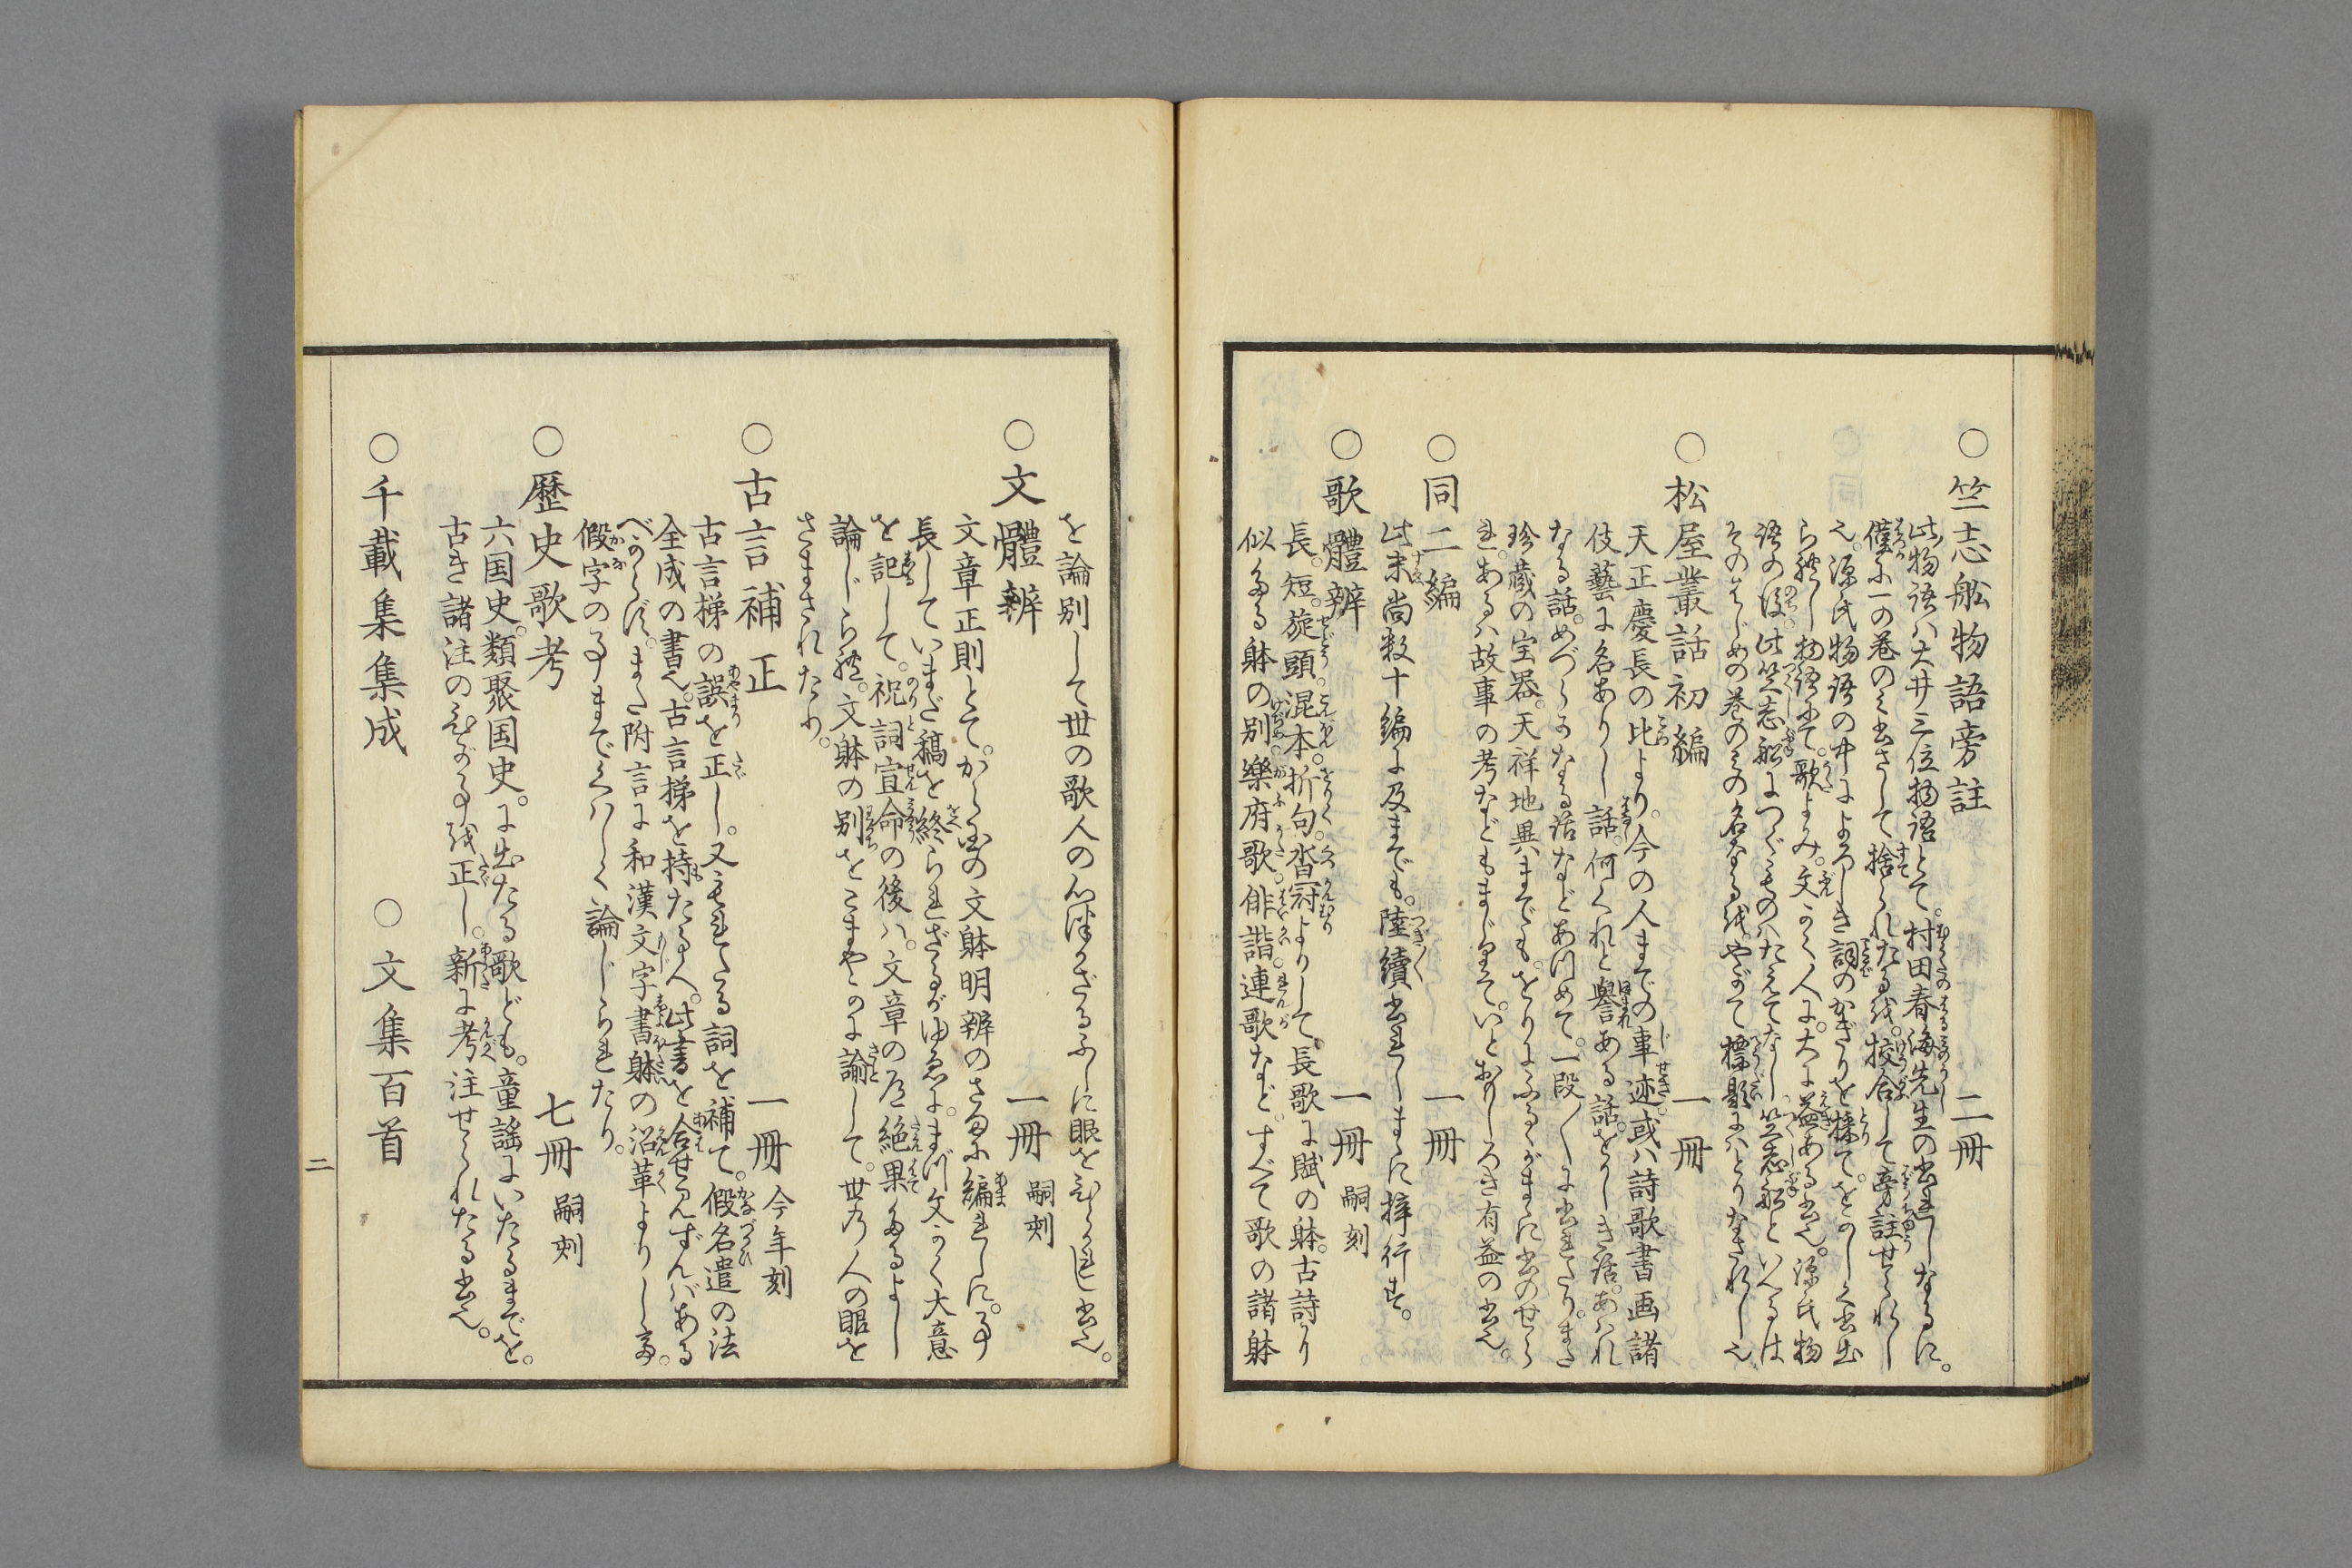 ○竺志舩物語旁註　二冊
此物語ハ大井三位物語とて。村田春海先生の書れしなるに。
僅に一の巻のミ書さして捨られたるを。挍合して旁註せられし
也。源氏物語の中によろしき詞のかぎりを採て。をのしく書出
られし物語にて。歌よみ。文かく人に。大に益ある書也。源氏物
語の後。此竺志舩につぐものハたえてなし竺志舩といへるは
そのはじめの巻のミの名なるを。やがて標題にハとりなされし也
○松屋叢話初編　一冊
天正慶長の比より。今の人までの事迹。或ハ詩歌書画諸
伎藝に名ありし話。何くれと譽ある話。をかしき話。あハれ
なる話。めづらかなる話などあつめて。一段〳〵に書れたり。また
珍蔵の宝器。天祥地異までも。をりにふるゝがまに書のせら
れ。あるハ故事の考などもまじりて。いとおもしろき有益の書也。
○同二編　一冊
此末尚数十編に及までも。陸續書れしまゝに梓行す。
○歌體辨　一冊　嗣刻
長。短。旋頭。混本。折句。沓冠よりして。長歌に賦の躰。古詩に
似たる躰の別。樂府歌。俳諧。連歌など。すべて歌の諸躰
を論別して世の歌人の心得ざるふしに眼をひらかれし書也。
○文體辨　一冊　嗣刻
文章正則とて。から国の文躰明辨のさまに編れしに。事
長していまだ稿を終られざるがゆゑに。まづ文かく大意
を記して。祝詞宣命の後ハ。文章の道絶果たるよし
論じられ。文躰の別をこまやかに諭して。世の人の眼を
さまされたり。
○古言補正　一冊　今年刻
古言梯の誤を正し。又もれたる詞を補て。假名遣の法
全成の書也。古言梯を持たる人。此書を合せ見ずんバある
べからず。また附言に和漢文字書躰の沿革よりして。
假字の事までくハしく論じられたり。
○歴史歌考　七冊　嗣刻
六国史。類聚国史。に出たる歌ども。童謡にいたるまでを。
古き諸注のひがことを正し。新に考注せられたる書也。
○千載集集成　○文集百首
二